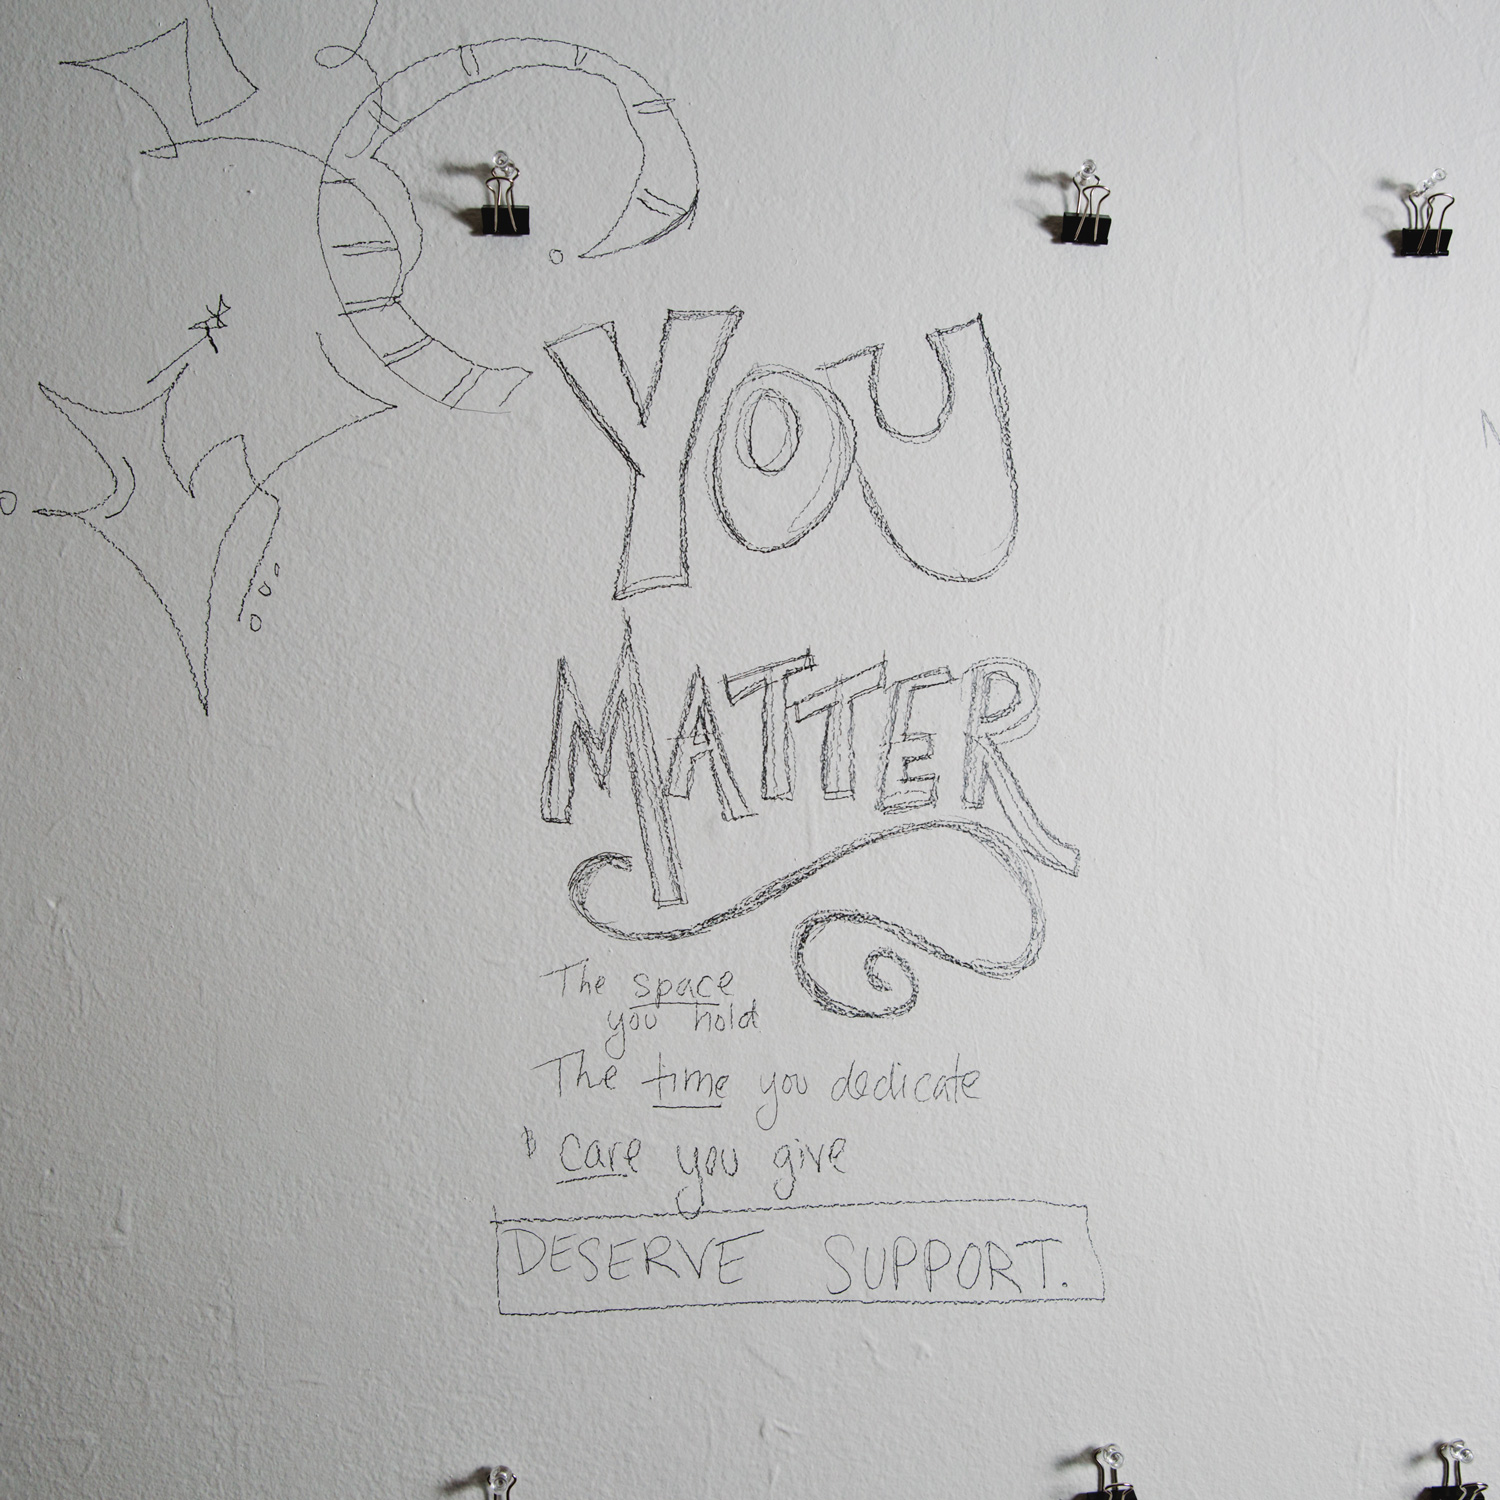 YOU
MATTER
The space
you hold
The time you dedicate
& care you give
DESERVE SUPPORT.